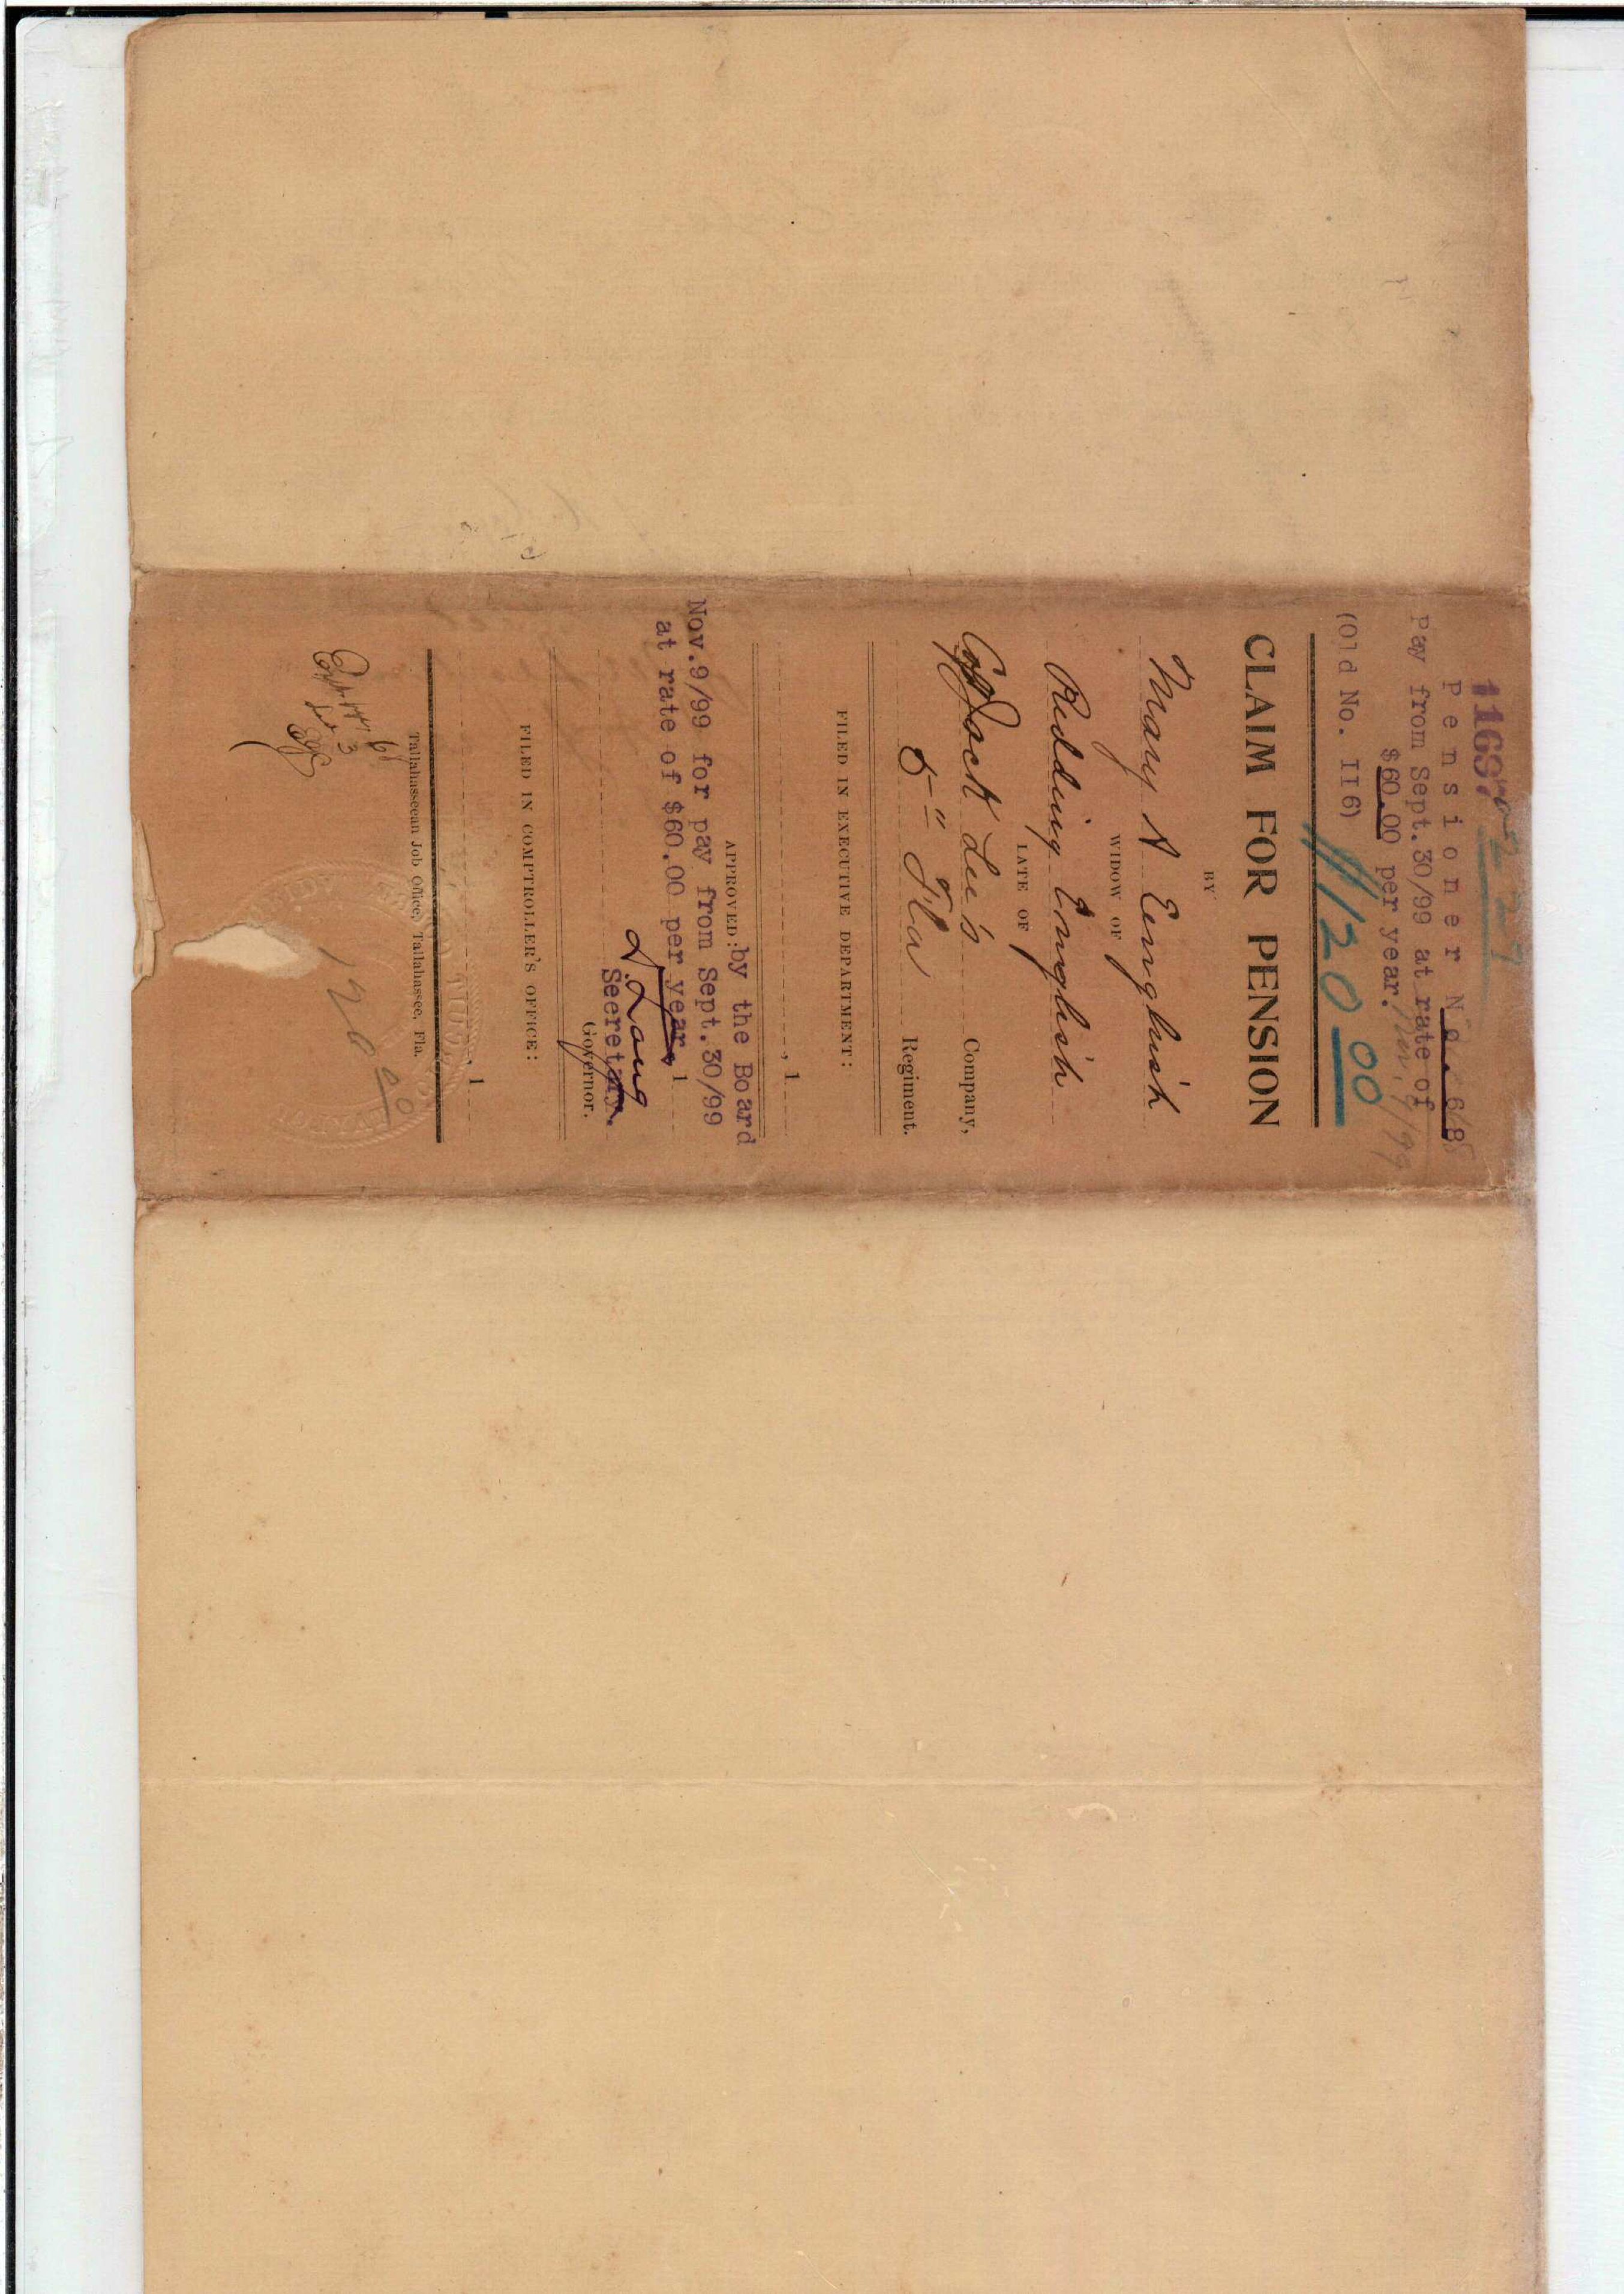 11687
Pensioner No. 618
Pay from Sept.30/99 at rate of
$60.00 per year. Nov. 9/99
(Old No. II6)
120 00
CLAIM FOR PENSION
BY
Mary A English
WIDOW OF
Redding English
LATE OF
Capt Jack Lee's Company,
5" Fla Regiment.
FILED IN EXECUTIVE DEPARTMENT:
, 1
APPROVED: by the Board
Nov.9/99 for pay from Sept.30/99
at rate of $60.00 per year, 1
D. Lang
Secretary.
Governor.
FILED IN COMPTROLLER'S OFFICE:
, 1
Tallahasseean Job Office, Tallahassee, Fla.
120 00